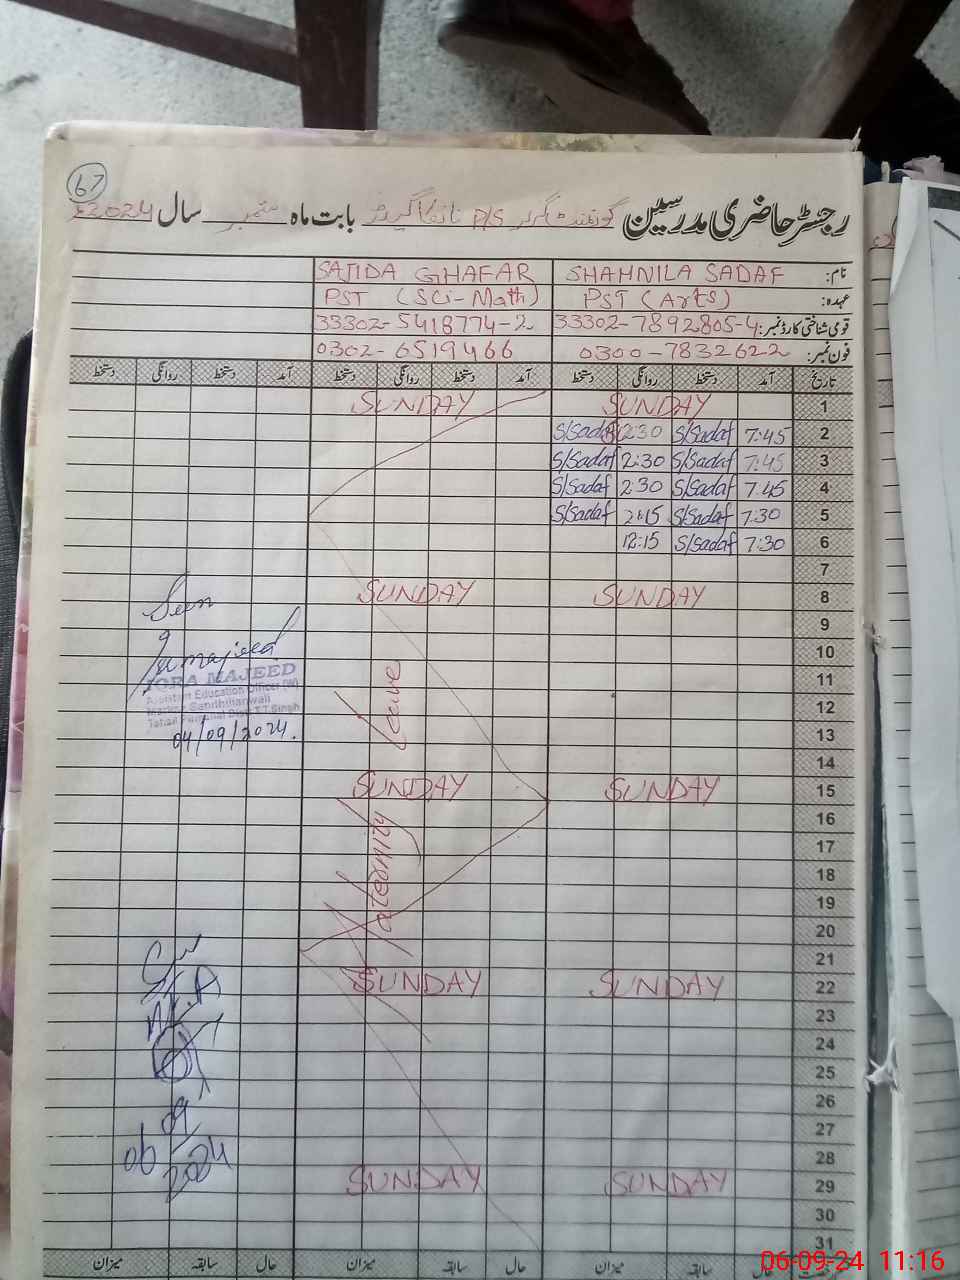 67
رجسٹر حاضری مدرسین گورنمنٹ گرلز P/S بابت ماہ ستمبر سال 2024ء
نام: SHAHNILA SADAF SAJIDA GHAFAR
عہدہ: PST (Arts) PST (Sci-Math)
قومی شناختی کارڈ نمبر: 33302-7892805-4 33302-5418774-2
فون نمبر: 0300-7832622 0302-6519466
تاریخ آمد دستخط روانگی دستخط آمد دستخط روانگی دستخط آمد دستخط روانگی دستخط
1 SUNDAY SUNDAY
2 7:45 S/Sadaf 2:30 S/Sadaf
3 7:45 S/Sadaf 2:30 S/Sadaf
4 7:45 S/Sadaf 2:30 S/Sadaf
5 7:30 S/Sadaf 2:15 S/Sadaf
6 7:30 S/Sadaf 12:15
7
8 SUNDAY SUNDAY
Seen
9
10
11
IQRA MAJEED
Assistant Education Officer (W)
12
13
04/09/2024.
Maternity Leave
14
15 SUNDAY SUNDAY
16
17
18
19
20
21
22 SUNDAY SUNDAY
23
24
25
26
27
28
06/09/2024
29 SUNDAY SUNDAY
30
31
حال سابقہ میزان حال سابقہ میزان حال سابقہ میزان
06-09-24 11:16